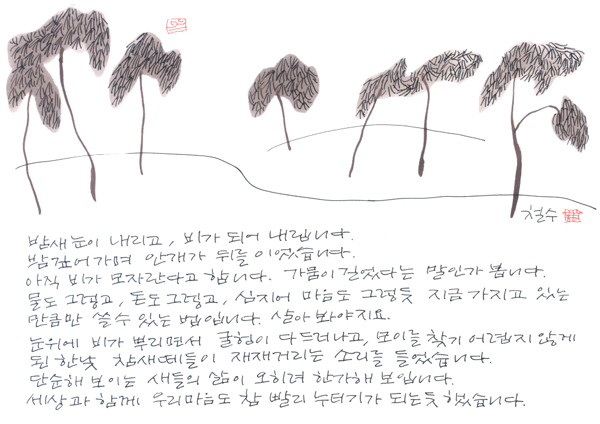 철수
밤새 눈이 내리고, 비가 되어 내립니다.
밤 깊어가며 안개가 뒤를 이었습니다.
아직 비가 모자란다고 합니다. 가뭄이 길었다는 말인가 봅니다.
물도 그렇고, 돈도 그렇고, 심지어 마음도 그렇듯 지금 가지고 있는
만큼만 쓸 수 있는 법입니다. 살아 봐야지요.
눈위에 비가 뿌리면서 굴헝이 다 드러나고, 모이를 찾기 어렵지 않게
된 한낮 참새떼들이 재재거리는 소리를 들었습니다.
단순해 보이는 새들의 삶이 오히려 한가해 보입니다.
세상과 함께 우리마음도 참 빨리 누더기가 되는듯 했습니다.